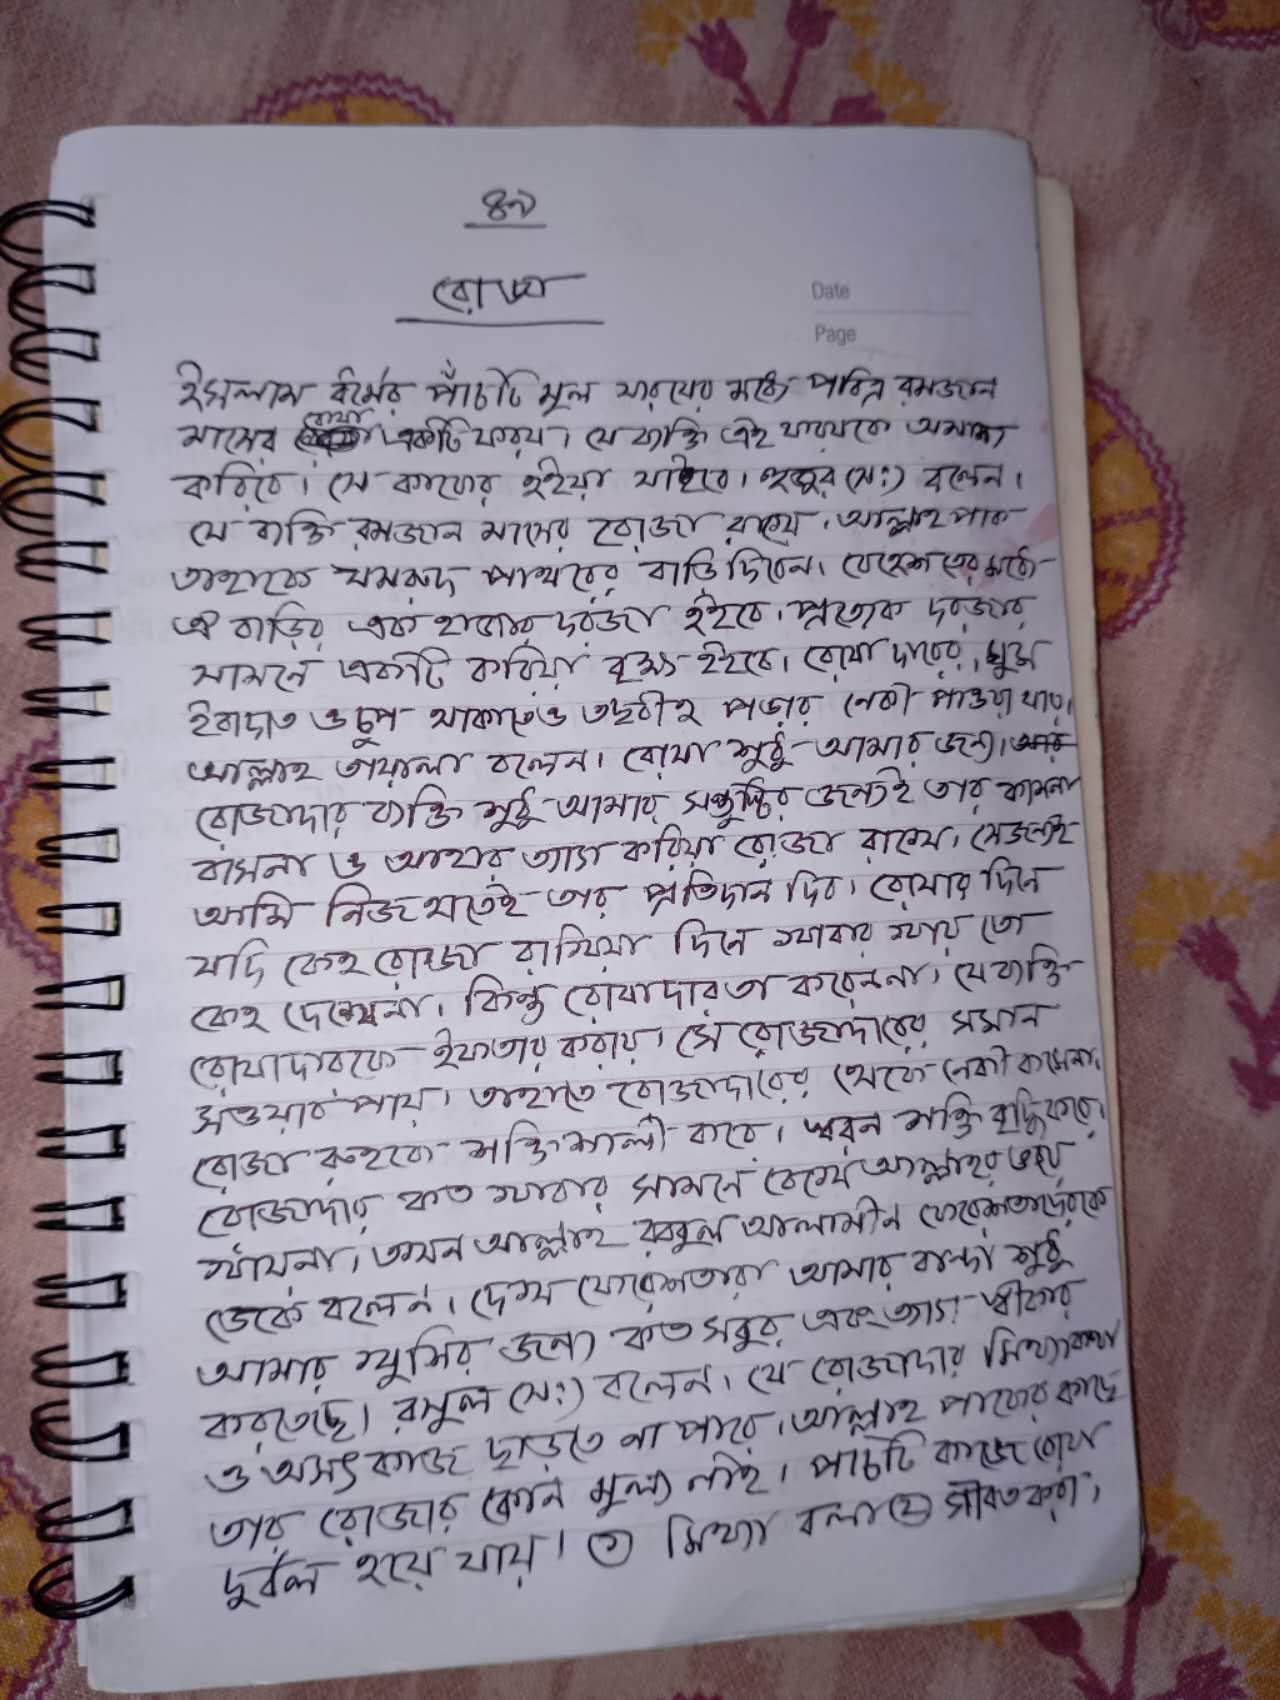 ৪৭
রোযা
Date
Page
ইসলাম ধর্মের পাঁচটি মূল ফরযের মধ্যে পবিত্র রমজান
মাসের রোযা একটি ফরয। যে ব্যক্তি এই ফরযকে অমান্য
করিবে। সে কাফের হইয়া যাইবে। হুজুর (সঃ) বলেন।
যে ব্যক্তি রমজান মাসের রোজা রাখে। আল্লাহ পাক
তাহাকে যমরুদ পাথরের বাড়ি দিবেন। বেহেশতের মধ্যে
ঐ বাড়ির এক হাজার দরজা হইবে। প্রত্যেক দরজার
সামনে একটি করিয়া বৃক্ষ হইবে। রোযাদারের, ঘুম
ইবাদাত ও চুপ থাকাতেও তছবীহ পড়ার নেকী পাওয়া যায়।
আল্লাহ তায়ালা বলেন। রোযা শুধু আমার জন্য। আর
রোজাদার ব্যক্তি শুধু আমার সন্তুষ্টির জন্যই তার কামনা
বাসনা ও আহার ত্যাগ করিয়া রোজা রাখে। সেজন্যই
আমি নিজ হাতেই তার প্রতিদান দিব। রোযার দিনে
যদি কেহ রোজা রাখিয়া দিনে খাবার খায় তো
কেহ দেখেনা। কিন্তু রোযাদার তা করেননা। যে ব্যক্তি
রোযাদারকে ইফতার করায়। সে রোজাদারের সমান
সওয়াব পায়। তাহাতে রোজাদারের থেকে নেকী কমেনা।
রোজা রুহকে শক্তিশালী করে। স্মরন শক্তি বৃদ্ধি করে।
রোজাদার কত খাবার সামনে রেখে আল্লাহর ভয়ে
খায়না। তখন আল্লাহ রব্বুল আলামীন ফেরেশতাদেরকে
ডেকে বলেন। দেখ ফেরেশতারা আমার বান্দা শুধু
আমার খুশির জন্য কত সবুর এবং ত্যাগ স্বীকার
করতেছে। রসুল (সঃ) বলেন। যে রোজাদার মিথ্যাকথা
ও অসৎ কাজ ছাড়তে না পারে। আল্লাহ পাকের কাছে
তার রোজার কোন মূল্য নাই। পাচটি কাজে রোযা
দুর্বল হয়ে যায়। ১ মিথ্যা বলা ২ গীবত করা,